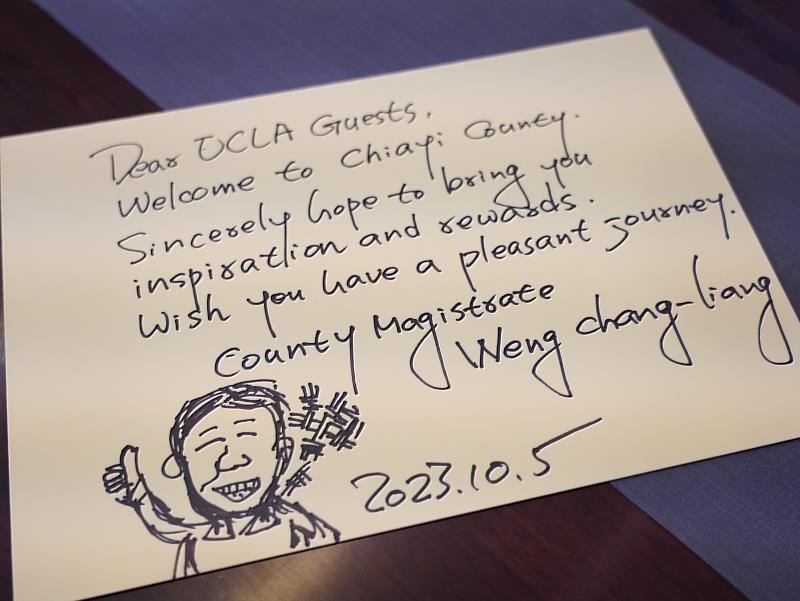 Dear UCLA Guests,
Welcome to Chiayi County.
Sincerely hope to bring you
inspiration and rewards.
Wish you have a pleasant journey.
County Magistrate
Weng Chang-liang
2023.10.5